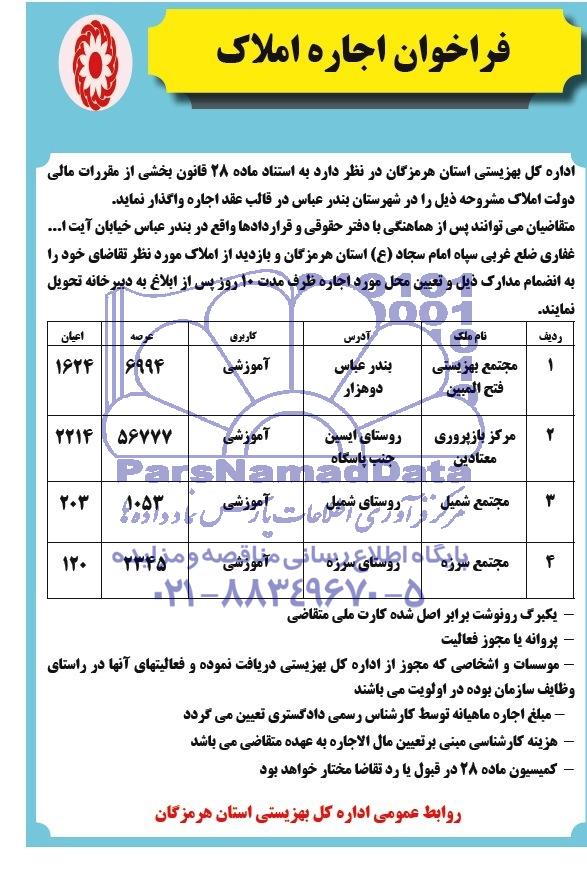 فراخوان اجاره املاک
اداره کل بهزیستی استان هرمزگان در نظر دارد به استناد ماده ۲۸ قانون بخشی از مقررات مالی
دولت املاک مشروحه ذیل را در شهرستان بندر عباس در قالب عقد اجاره واگذار نماید.
متقاضیان می توانند پس از هماهنگی با دفتر حقوقی و قراردادها واقع در بندر عباس خیابان آیت ا...
غفاری ضلع غربی سپاه امام سجاد (ع) استان هرمزگان و بازدید از املاک مورد نظر تقاضای خود را
به انضمام مدارک ذیل و تعیین محل مورد اجاره ظرف مدت ۱۰ روز پس از ابلاغ به دبیرخانه تحویل
نمایند.
ردیف نام ملک آدرس کاربری عرصه اعیان
۱ مجتمع بهزیستی فتح المبین بندر عباس دوهزار آموزشی ۶۹۹۴ ۱۶۲۴
۲ مرکز بازپروری معتادین روستای ایسین جنب پاسگاه آموزشی ۵۶۷۷۷ ۲۲۱۴
۳ مجتمع شمیل روستای شمیل آموزشی ۱۰۵۳ ۲۰۳
۴ مجتمع سرزه روستای سرزه آموزشی ۲۳۴۵ ۱۲۰
ParsNamadData
مرکز فرآوری اطلاعات پارس نماد داده ها
پایگاه اطلاع رسانی مناقصه و مزایده
۰۲۱-۸۸۳۴۹۶۷۰-۵
– یکبرگ رونوشت برابر اصل شده کارت ملی متقاضی
– پروانه یا مجوز فعالیت
– موسسات و اشخاصی که مجوز از اداره کل بهزیستی دریافت نموده و فعالیتهای آنها در راستای
وظایف سازمان بوده در اولویت می باشند
– مبلغ اجاره ماهیانه توسط کارشناس رسمی دادگستری تعیین می گردد
– هزینه کارشناسی مبنی برتعیین مال الاجاره به عهده متقاضی می باشد
– کمیسیون ماده ۲۸ در قبول یا رد تقاضا مختار خواهد بود
روابط عمومی اداره کل بهزیستی استان هرمزگان